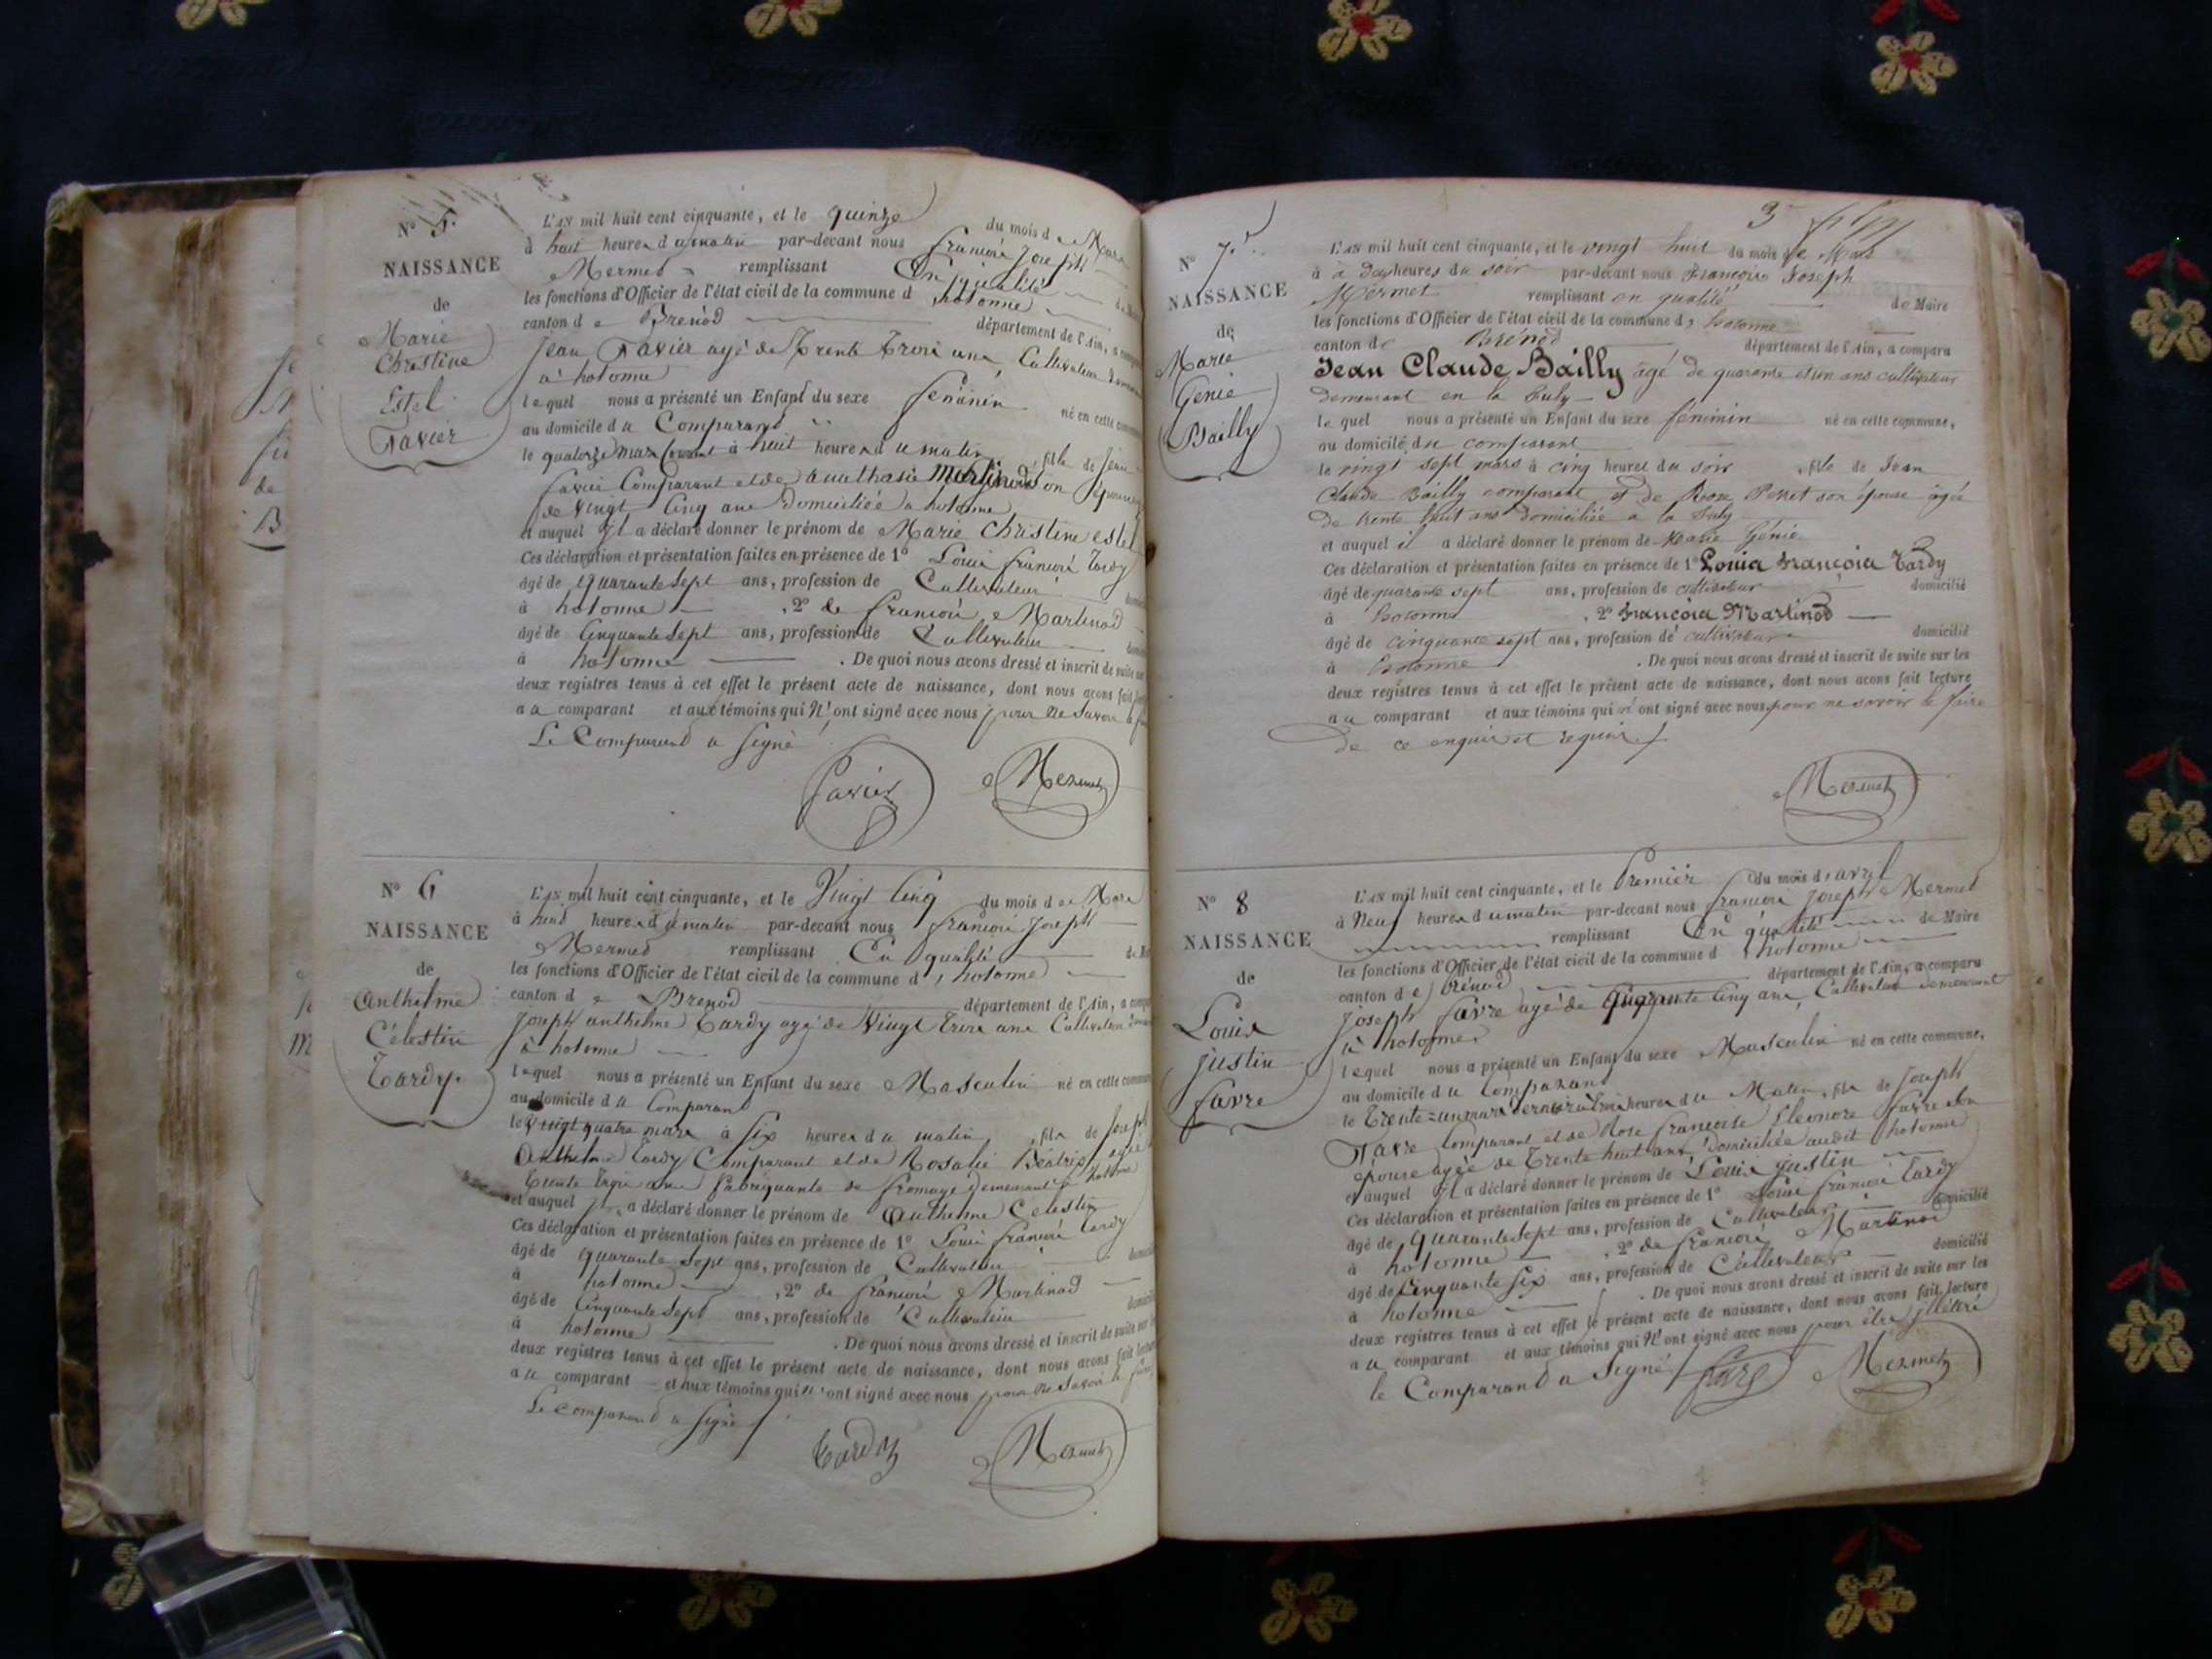 N° 5.
NAISSANCE
de
Marie
Christine
Estel
Favier
L'AN mil huit cent cinquante, et le quinze du mois de Mars
à huit heures du matin par-devant nous françois Joseph
Mermet remplissant En qualité
les fonctions d'Officier de l'état civil de la commune d hotonne
canton de Brenod département de l'Ain, a
Jean Favier agé de Trente Trois ans Cultivateur
à hotonne
lequel nous a présenté un Enfant du sexe féminin né en cette
au domicile du Comparant
le quatorze mars à huit heures du matin, fille de Jean
favier Comparant et de Martinod son épouse
de vingt Cinq ans domiciliée a hotonne
et auquel Il a déclaré donner le prénom de Marie Christine estel
Ces déclaration et présentation faites en présence de 1° Louis françois tardy
âgé de quarante Sept ans, profession de Cultivateur
à hotonne , 2° de françois Martinod
âgé de Cinquante Sept ans, profession de Cultivateur
à hotonne . De quoi nous avons dressé et inscrit de suite sur
deux registres tenus à cet effet le présent acte de naissance, dont nous avons fait
au comparant et aux témoins qui N'ont signé avec nous pour Ne Savoir le
Le Comparant a signé
favier Mermet
N° 6
NAISSANCE
de
Anthelme
Célestin
Tardy.
L'AN mil huit cent cinquante, et le Vingt Cinq du mois de Mars
à heures du matin par-devant nous françois Joseph
Mermet remplissant En qualité
les fonctions d'Officier de l'état civil de la commune d'hotonne
canton de Brenod département de l'Ain, a
Joseph anthelme Tardy agé de Vingt Trois ans Cultivateur
à hotonne
lequel nous a présenté un Enfant du sexe Masculin né en cette
au domicile du Comparant
le vingt quatre mars à six heures du matin, fils de Joseph
Anthelme Tardy Comparant et de Rosalie Béatrix
Trente Trois ans fabriquante de fromage demeurant à hotonne
et auquel Il a déclaré donner le prénom de Anthelme Celestin
Ces déclaration et présentation faites en présence de 1° Louis françois tardy
âgé de quarante Sept ans, profession de Cultivateur
à hotonne , 2° de françois Martinod
âgé de Cinquante Sept ans, profession de Cultivateur
à hotonne . De quoi nous avons dressé et inscrit de suite sur
deux registres tenus à cet effet le présent acte de naissance, dont nous avons fait lecture
au comparant et aux témoins qui N'ont signé avec nous pour Ne Savoir le faire
Le Comparant a signé
tardy Mermet
3
N° 7.
NAISSANCE
de
Marie
Génie
Bailly
L'AN mil huit cent cinquante, et le vingt huit du mois de Mars
à heures du soir par-devant nous François Joseph
Mermet remplissant en qualité de Maire
les fonctions d'Officier de l'état civil de la commune d'hotonne
canton de Brénod département de l'Ain, a comparu
Jean Claude Bailly âgé de quarante et un ans cultivateur
demeurant en la
lequel nous a présenté un Enfant du sexe féminin né en cette commune,
au domicile du comparant
le vingt sept mars à cinq heures du soir , fille de Jean
Claude Bailly comparant et de Rose Perret son épouse âgée
de trente huit ans domiciliée a la
et auquel il a déclaré donner le prénom de Marie Génie
Ces déclaration et présentation faites en présence de 1° Louis François Tardy
âgé de quarante sept ans, profession de cultivateur domicilié
à hotonne , 2° François Martinod
âgé de cinquante sept ans, profession de cultivateur domicilié
à hotonne . De quoi nous avons dressé et inscrit de suite sur les
deux registres tenus à cet effet le présent acte de naissance, dont nous avons fait lecture
au comparant et aux témoins qui n'ont signé avec nous pour ne savoir le faire
de ce enquis et requis
Mermet
N° 8
NAISSANCE
de
Louis
justin
favre
L'AN mil huit cent cinquante, et le Premier du mois d'avril
à Neuf heures du matin par-devant nous françois Joseph Mermet
remplissant En qualité de Maire
les fonctions d'Officier de l'état civil de la commune d'hotonne
canton de Brénod département de l'Ain, a comparu
Joseph favre agé de quarante Cinq ans, Cultivateur demeurant
à hotonne
lequel nous a présenté un Enfant du sexe Masculin né en cette commune,
au domicile du Comparant
le Trente=un mars dernier à trois heures du Matin, fils de Joseph
Favre Comparant et de Rose francoise Eleonore favre son
épouse agée de Trente huit ans domiciliée audit hotonne
et auquel Il a déclaré donner le prénom de Louis justin
Ces déclaration et présentation faites en présence de 1° Louis francois tardy
âgé de quarante Sept ans, profession de Cultivateur domicilié
à hotonne , 2° de francois Martinod
âgé de Cinquante Six ans, profession de Cultivateur domicilié
à hotonne . De quoi nous avons dressé et inscrit de suite sur les
deux registres tenus à cet effet le présent acte de naissance, dont nous avons fait lecture
au comparant et aux témoins qui N'ont signé avec nous pour être illétré
le Comparant a Signé Mermet